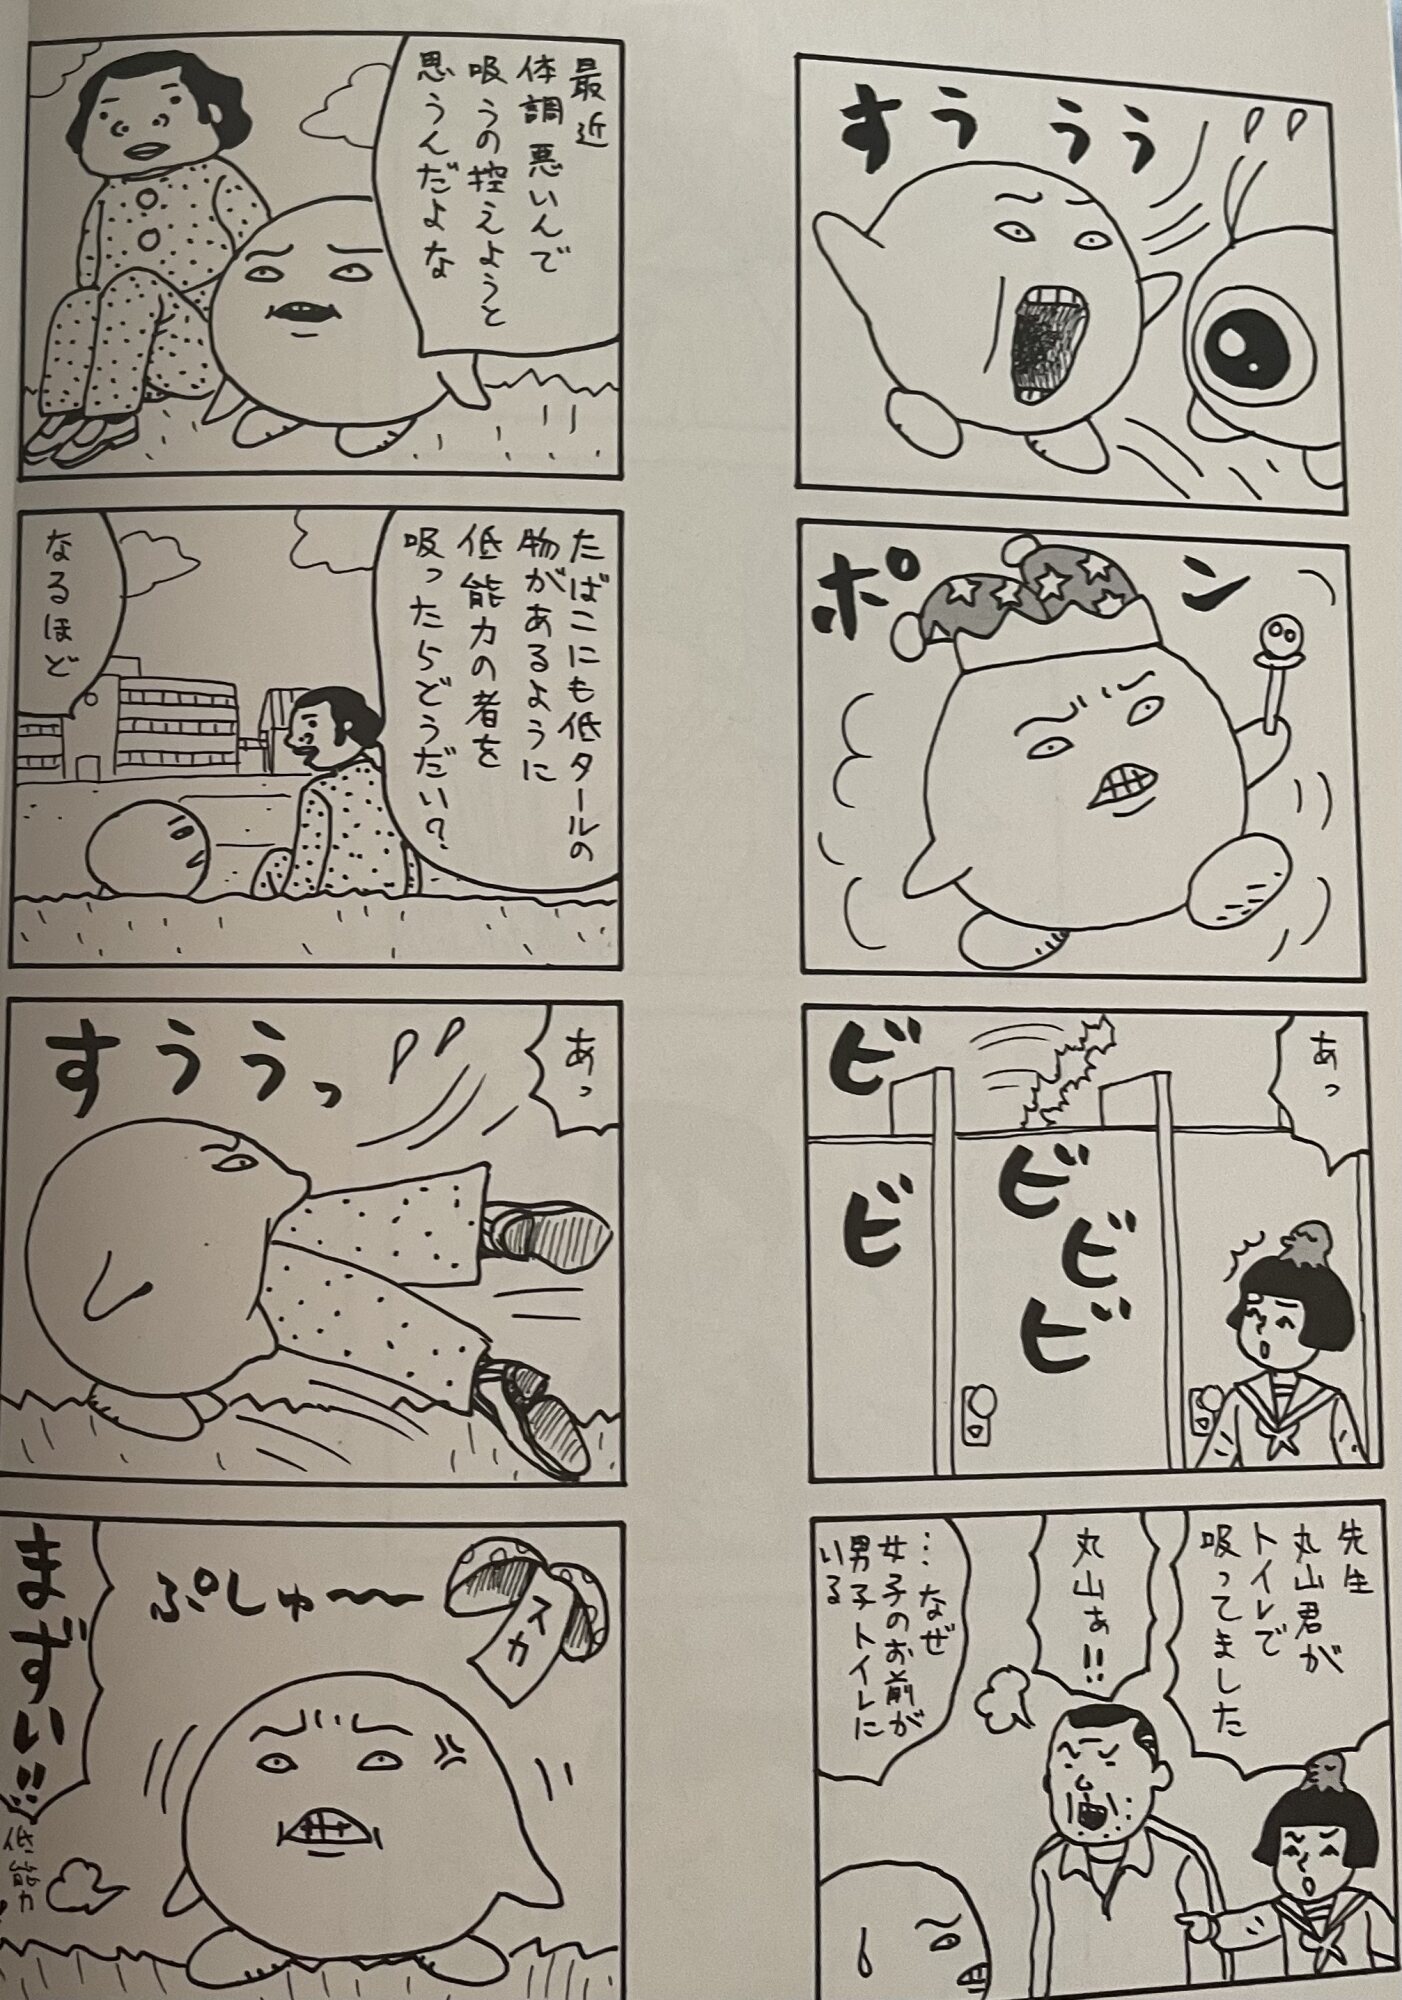 すううう
ポン
あっ
ビビビビビ
先生
丸山君が
トイレで
吸ってました
丸山ぁ!!
…なぜ
女子のお前が
男子トイレに
いる
最近
体調悪いんで
吸うの控えようと
思うんだよな
たばこにも低タールの
物があるように
低能力の者を
吸ったらどうだい?
なるほど
あっ
すううっ
スカ
ぷしゅ〜〜
まずい!!
低能力